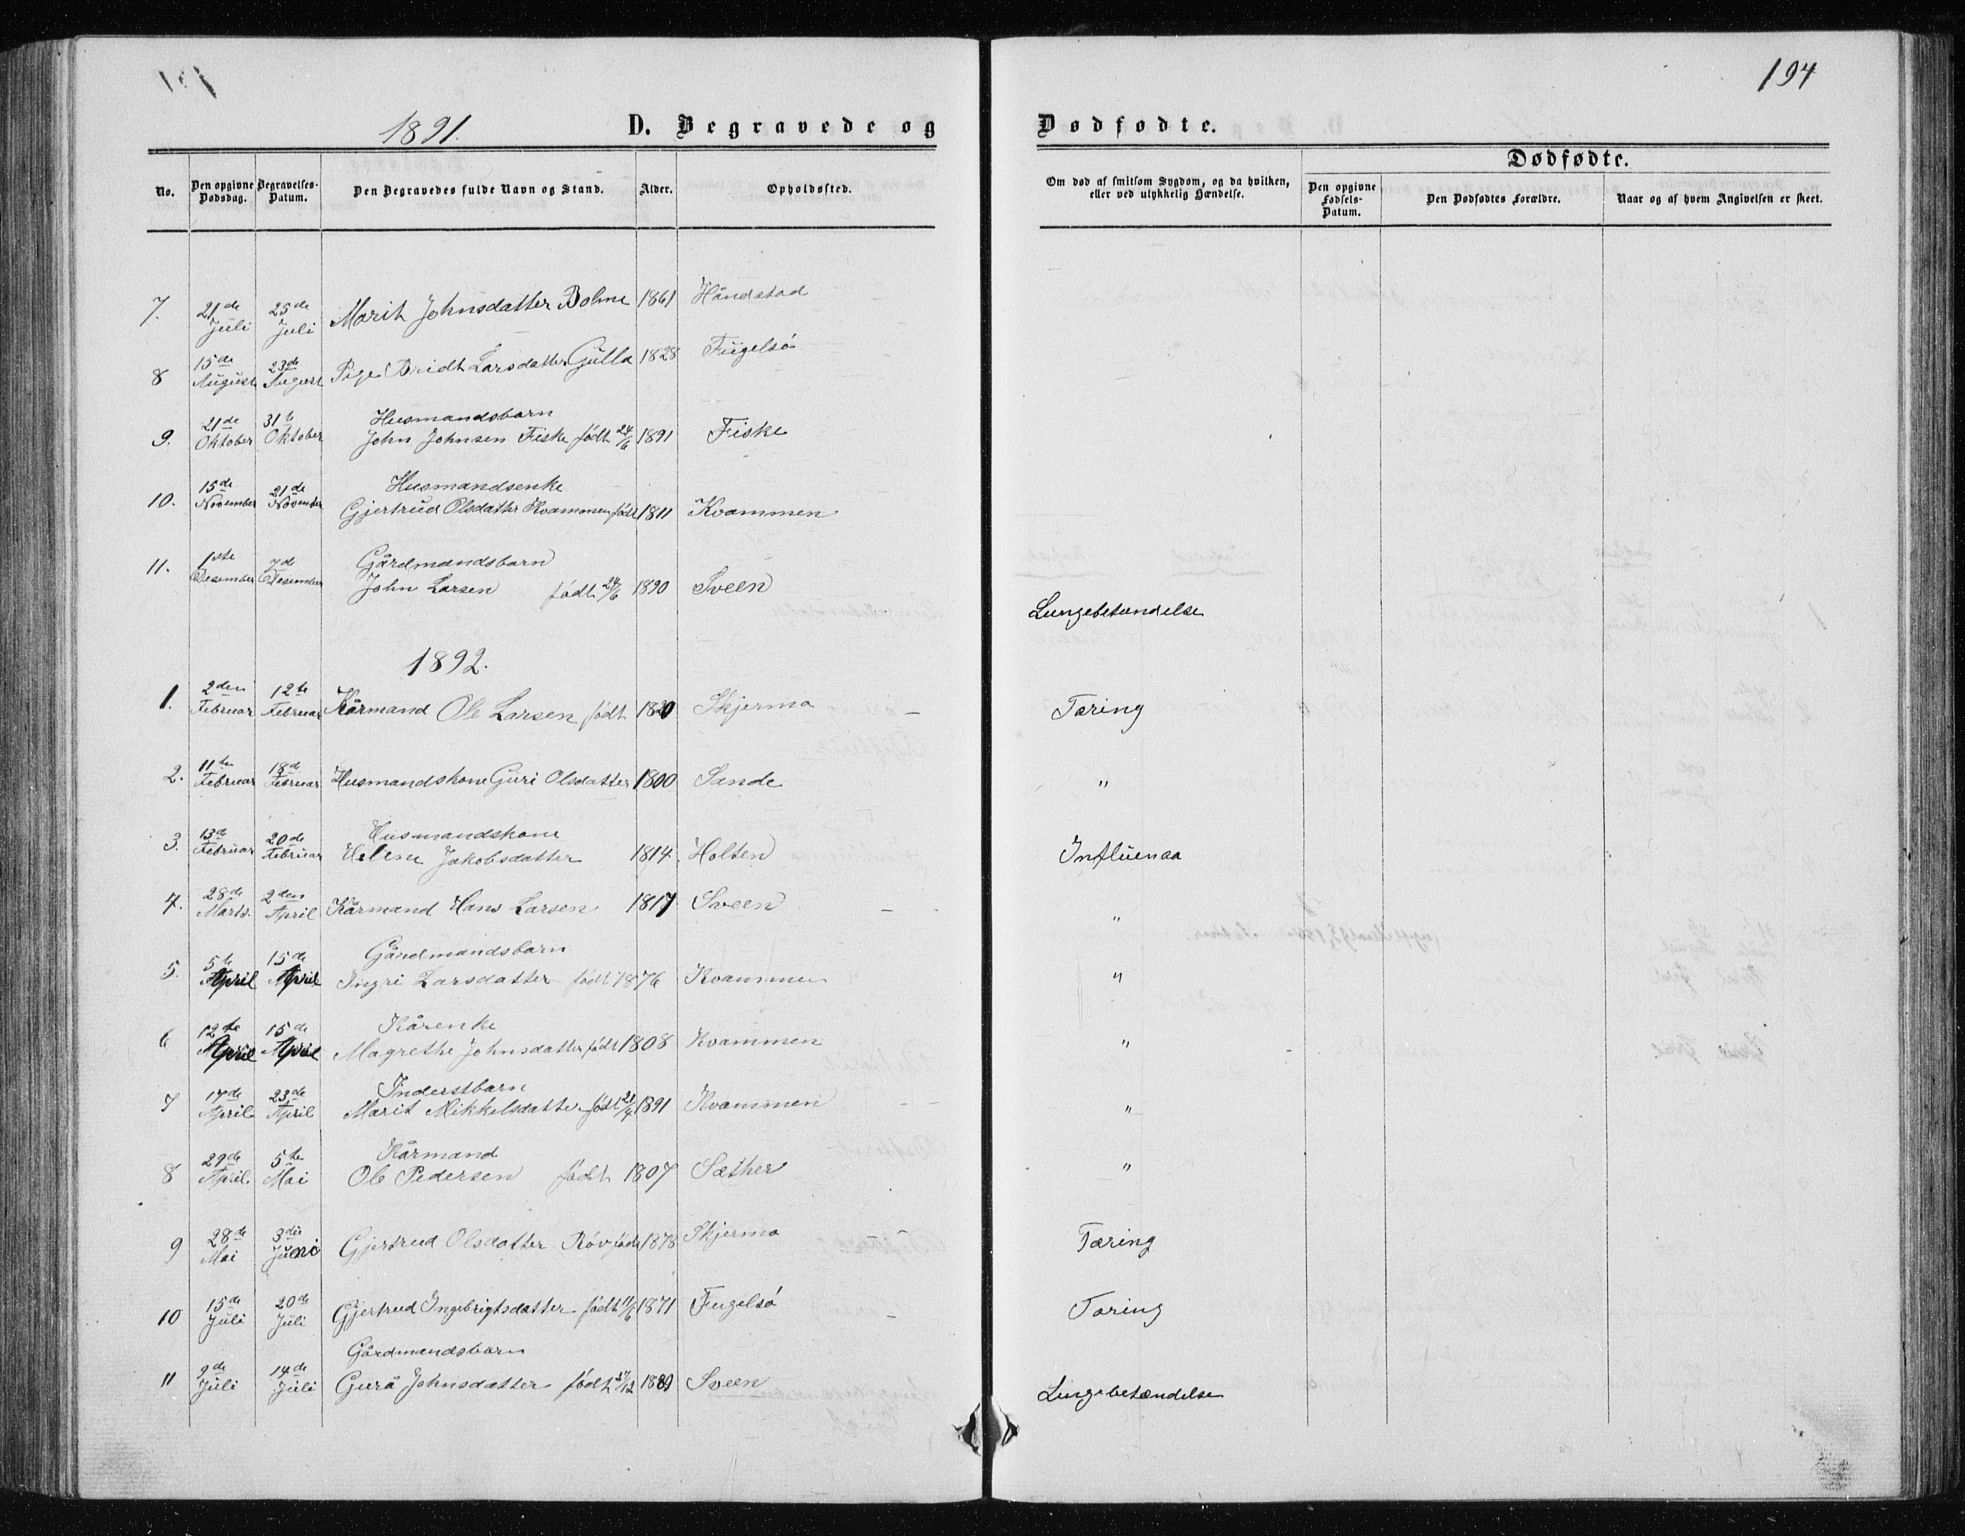 194
1891. D. Begravede og Dødfødte.
Dødfødte.
No. Den opgivne Dødsdag. Begravelses-Datum. Den Begravedes fulde Navn og Stand. Alder. Opholdssted. Om død af smitsom Sygdom, og da hvilken, eller ved ulykkelig Hændelse. Den opgivne Fødsels-Datum. Den Dødfødtes Forældre. Naar og af hvem Angivelsen er skeet.
7. 21de Juli 25de Juli Marit Johnsdatter Bolme 1861 Håndstad
8 15de August 23de August Pige Bridt Larsdatter Gulla 1828 Fugelsö
9. 21de Oktober 31te Oktober Husmandsbarn
John Johnsen Fiske født 24/6 1891 Fiske
10. 15de November 21de November Husmandsenke
Gjertrud Olsdatter Kvammen født 1811 Kvammen
11. 1ste Desember 7de Desember Gårdmandsbarn
John Larsen født 24/6 1890 Sveen Lungebetændelse
1892.
1. 2den Februar 12te Februar Kårmand Ole Larsen født 1820 Skjerma Tæring
2. 11te Februar 18de Februar Husmandskone Guri Olsdatter 1800 Sande "
3. 13de Februar 20de Februar Husmandskone
Helene Jakobsdatter 1814. Holten Influensa
4. 28de Marts. 2den April Kårmand Hans Larsen 1817 Sveen "
5. 5te April 15de April Gårdmandsbarn
Ingri Larsdatter født 1876 Kvammen "
6 12te April 15de April Kårenke
Magrethe Johnsdatter født 1808 Kvammen "
7 17de April 23de April Inderstbarn
Marit Mikkelsdatter født 21/4 1891 Kvammen "
8 29de April. 5te Mai Kårmand
Ole Pedersen født 1807 Sæther "
9 28de Mai 3die Juni Gjertrud Olsdatter Röv født 1878 Skjerma Tæring
10 15de Juli 20de Juli Gjertrud Ingebrigtsdatter født 11/6 1871 Fugelsö Tæring
11 9de Juli 14de Juli Gårdmandsbarn
Gurå Johnsdatter født 27/12 1889 Sveen Lungebetændelse